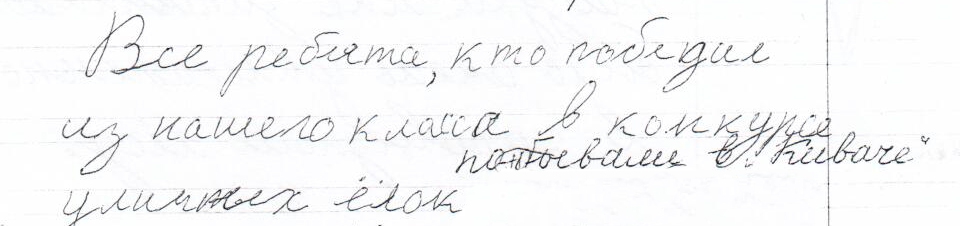 Все ребята, кто победил
из нашего класса в конкурсе
побывали в "Киваче"
уличных ёлок